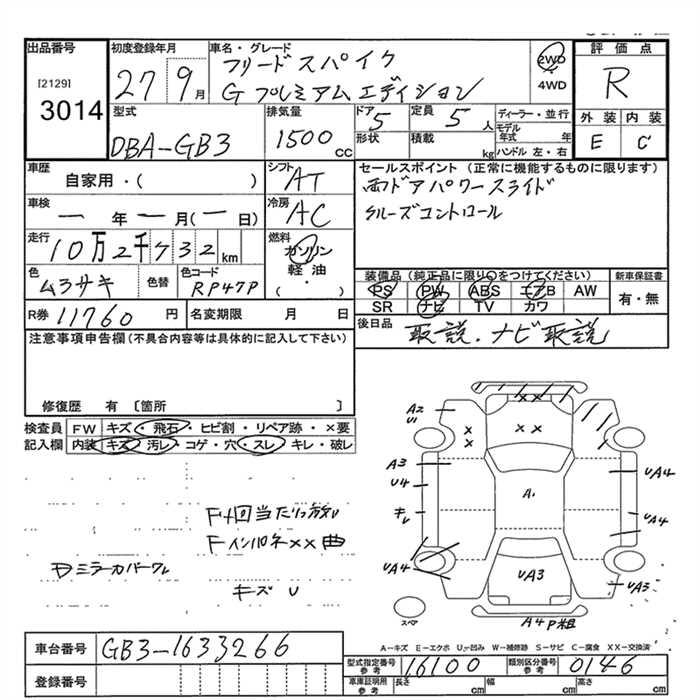 出品番号
[2129]
3014
初度登録年月
27年9月
車名・グレード
フリードスパイク
Gプレミアムエディション
2WD
4WD
評価点
R
外装 内装
E C
型式
DBA-GB3
排気量
1500cc
ドア 5
形状
定員 5人
積載 kg
ディーラー・並行
モデル年式 年
ハンドル 左・右
車歴
自家用・( )
シフト AT
車検
一年一月(一日)
冷房 AC
走行
10万2千732km
燃料
ガソリン
軽油・
( )
色
ムラサキ
色替
色コード
RP47P
R券 11760円
名変期限 月 日
セールスポイント (正常に機能するものに限ります)
両ドアパワースライド
クルーズコントロール
装備品 (純正品に限り○をつけてください)
PS PW ABS エアB AW
SR ナビ TV カワ
新車保証書
有・無
後日品
取説.ナビ取説
注意事項申告欄(不具合内容等は具体的に記入して下さい)
修復歴 有 〔箇所 〕
検査員記入欄
FW キズ・飛石・ヒビ割・リペア跡・×要
内装 キズ・汚レ・コゲ・穴・スレ・キレ・破レ
ミラーカバーワレ
キズ U
A2
U1
A3
U4
キレ
UA4
A1
UA4
UA4
UA3
UA3
A4 P粗
スペア
A-キズ E-エクボ U-凹み W-補修跡 S-サビ C-腐食 XX-交換済
車台番号 GB3-1633266
登録番号
型式指定番号 参考 16100
類別区分番号 参考 0146
車庫証明用 参考 長さ cm 幅 cm 高さ cm